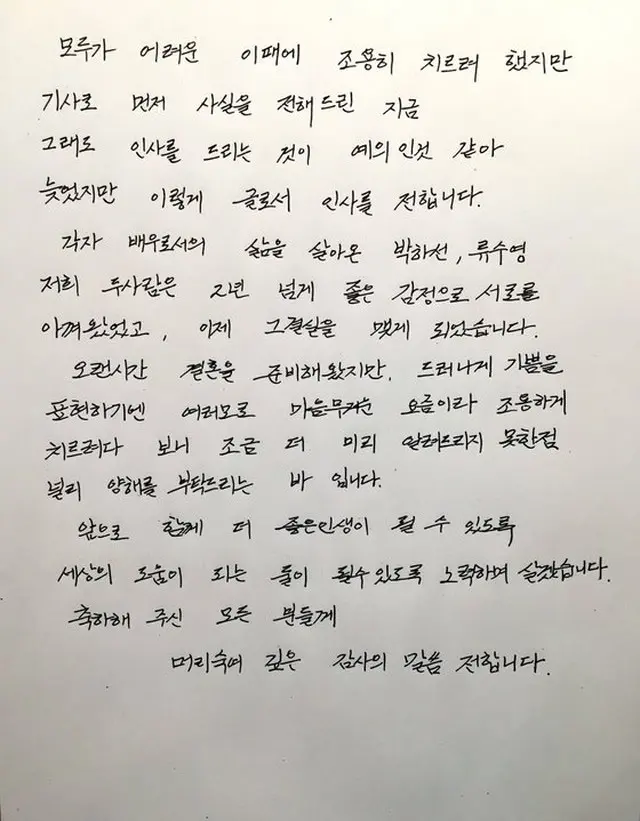 모두가 어려운 이때에 조용히 치르려 했지만
기사로 먼저 사실을 전해드린 지금
그래도 인사를 드리는 것이 예의인것 같아
늦었지만 이렇게 글로서 인사를 전합니다.
각자 배우로서의 삶을 살아온 박하선, 류수영
저희 두사람은 2년 넘게 좋은 감정으로 서로를
아껴왔었고, 이제 그결실을 맺게 되었습니다.
오랜시간 결혼을 준비해왔지만, 드러나게 기쁨을
표현하기엔 여러모로 마음무거운 요즘이라 조용하게
치르려다 보니 조금 더 미리 알려드리지 못한점
널리 양해를 부탁드리는 바 입니다.
앞으로 함께 더 좋은인생이 될 수 있도록
세상의 도움이 되는 둘이 될수있도록 노력하며 살겠습니다.
축하해 주신 모든 분들께
머리숙여 깊은 감사의 말씀 전합니다.